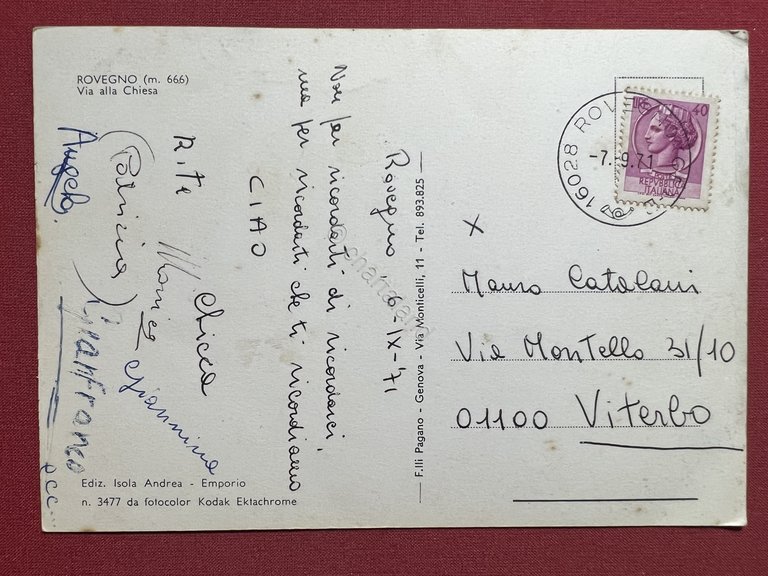 ROVEGNO (m. 666)
Via alla Chiesa
Rovegno, 6-IX-'71
Non per ricordarti di ricordarci,
ma per ricordarti che ti ricordiamo
CIAO
Chicca
Rita
Monica
Giannina
(Patrizia)
Gianfranco
Angelo
ecc..
Ediz. Isola Andrea - Emporio
n. 3477 da fotocolor Kodak Ektachrome
F.lli Pagano - Genova - Via Monticelli, 11 - Tel. 893.825
LIRE 40
POSTE
REPUBBLICA
ITALIANA
16028 ROVEGNO
-7.-9.71
x
Mauro Catalani
Via Montello 31/10
01100 Viterbo